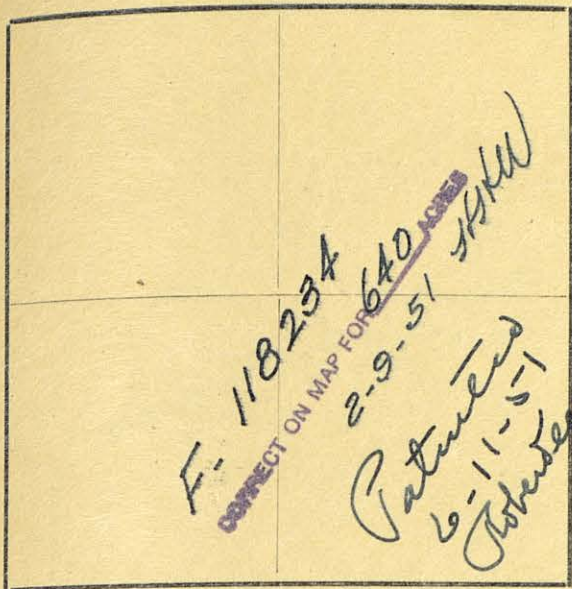 F- 118234
CORRECT ON MAP FOR 640 ACRES
2-9-51
Patented
6-11-51